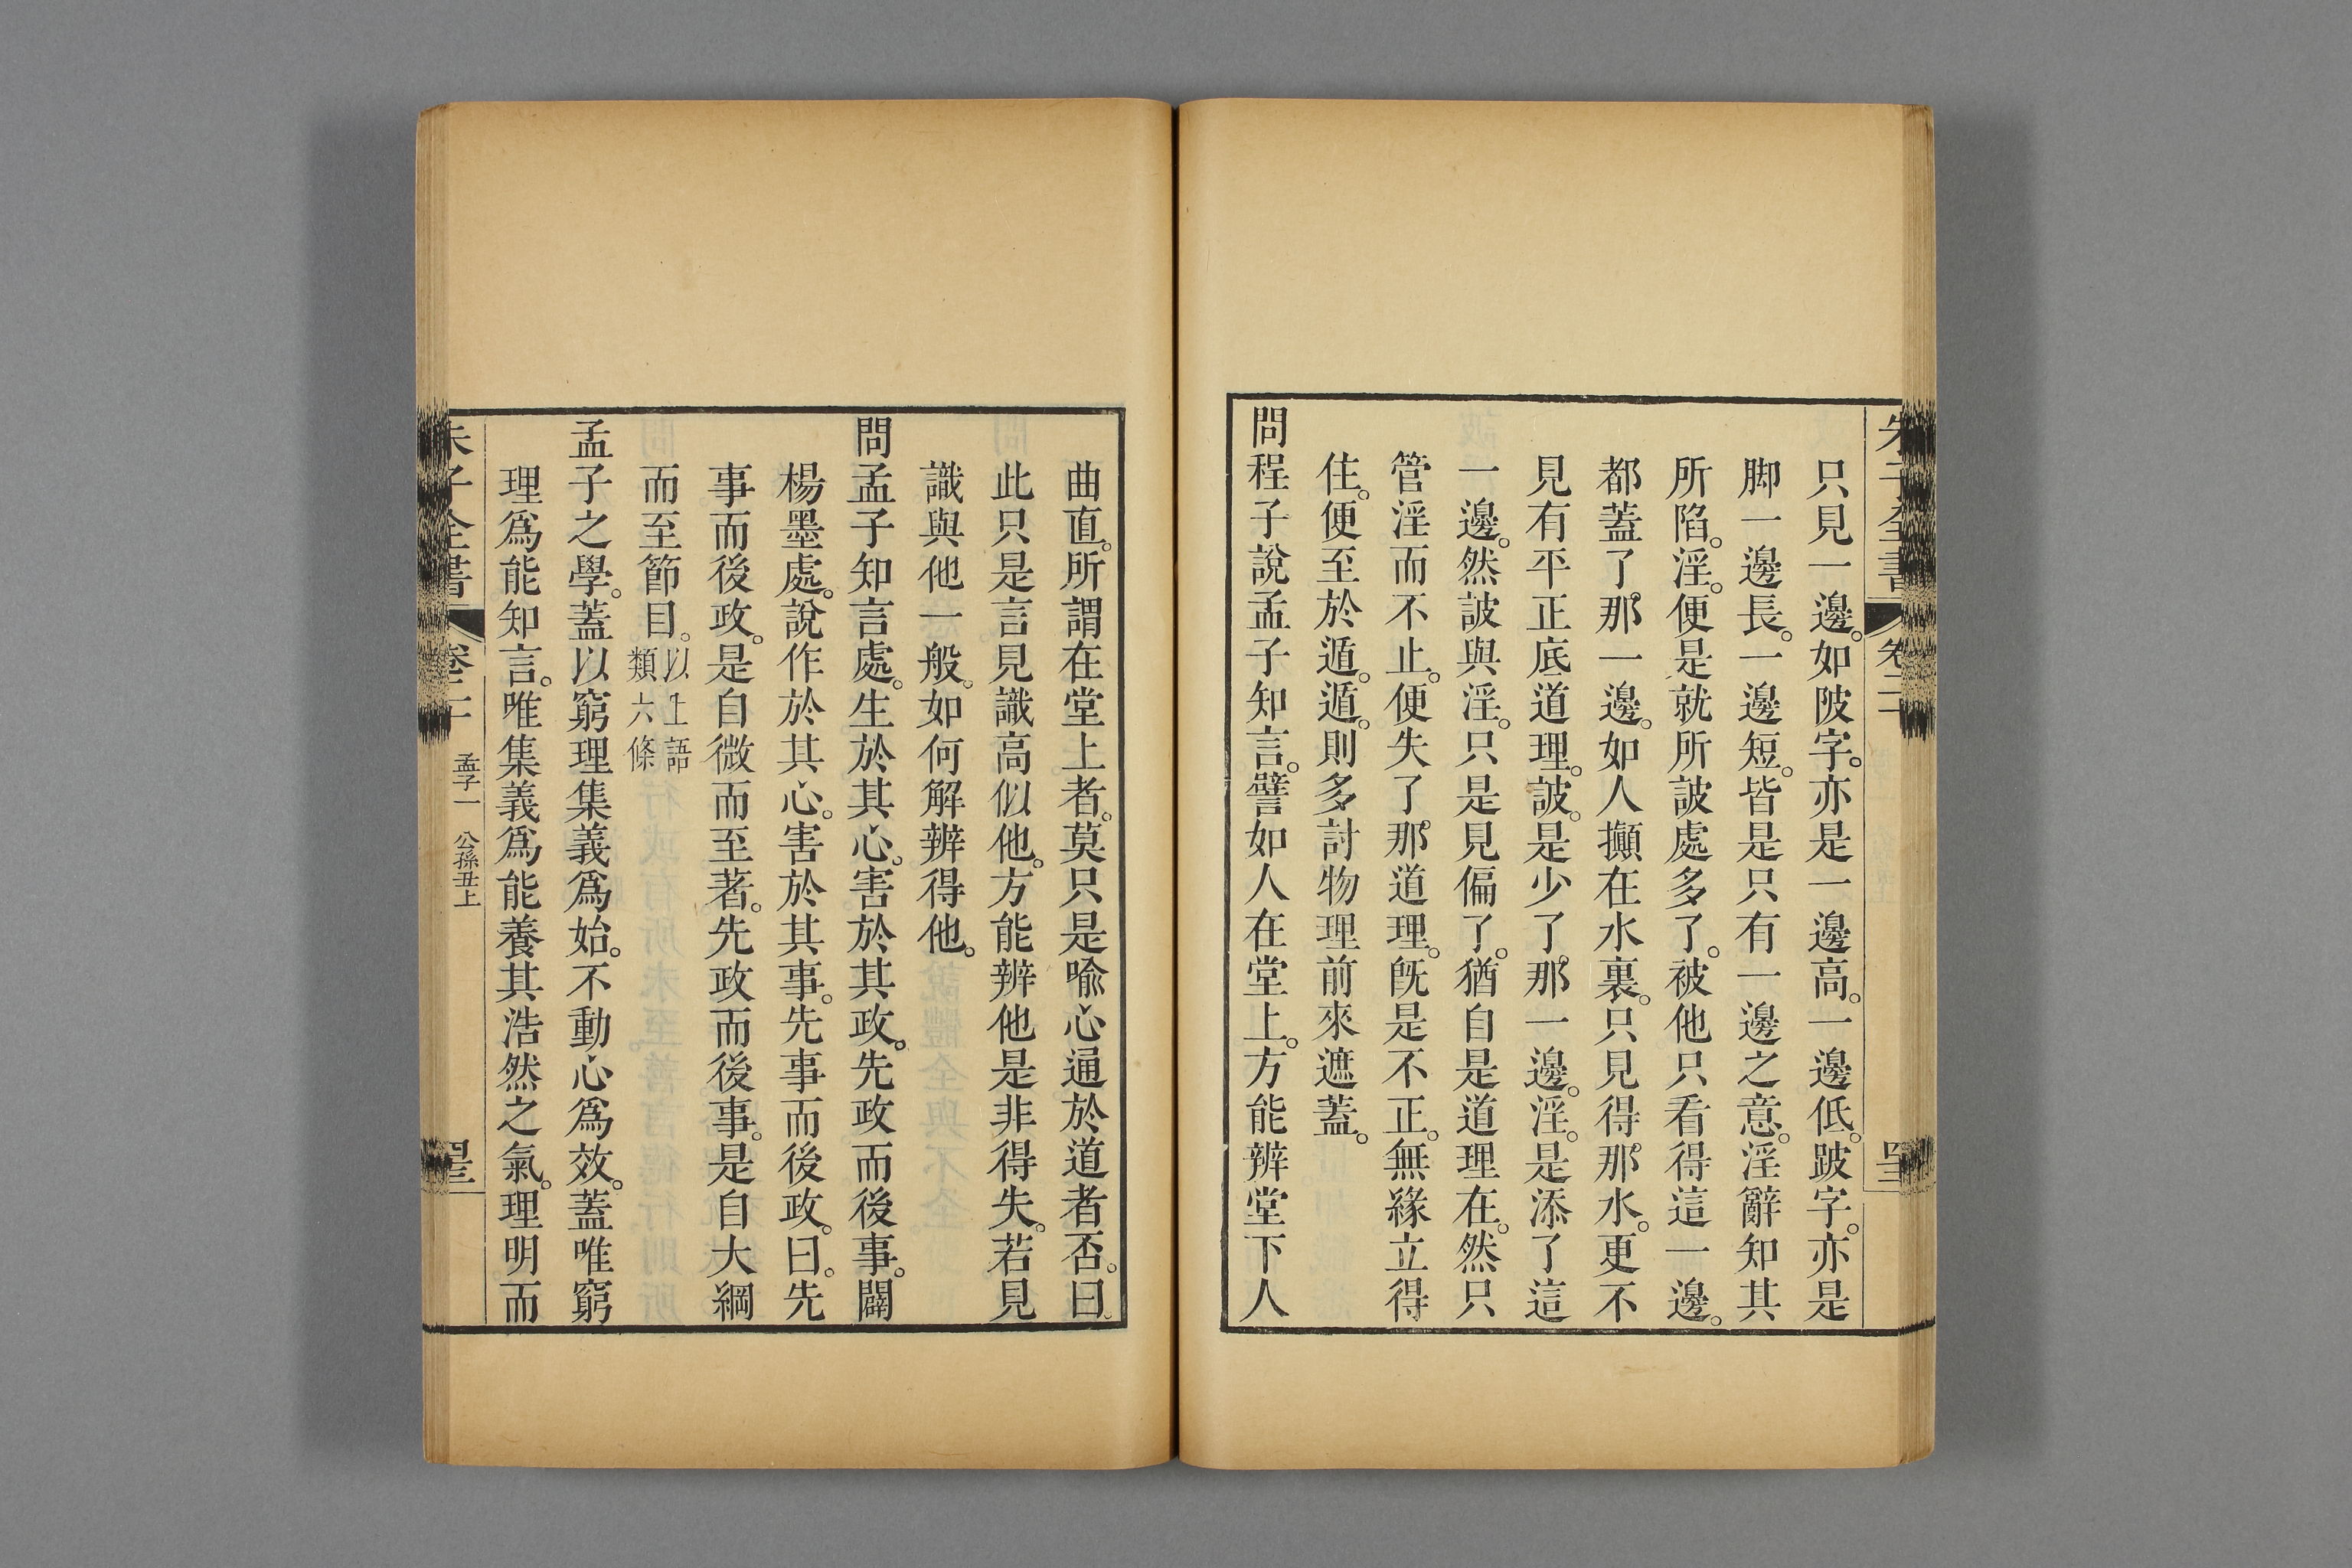 朱子全書 卷二十
只見一邊。如陂字。亦是一邊高。一邊低。跛字。亦是
脚一邊長。一邊短。皆是只有一邊之意。淫辭知其
所陷。淫。便是就所詖處多了。被他只看得這一邊。
都蓋了那一邊。如人攧在水裏。只見得那水。更不
見有平正底道理。詖。是少了那一邊。淫。是添了這
一邊。然詖與淫。只是見偏了。猶自是道理在。然只
管淫而不止。便失了那道理。旣是不正。無緣立得
住。便至於遁。遁。則多討物理前來遮蓋。
問程子說孟子知言。譬如人在堂上。方能辨堂下人
曲直。所謂在堂上者。莫只是喻心通於道者否。曰。
此只是言見識高似他。方能辨他是非得失。若見
識與他一般。如何解辨得他。
問孟子知言處。生於其心。害於其政。先政而後事。闢
楊墨處。說作於其心。害於其事。先事而後政。曰。先
事而後政。是自微而至著。先政而後事。是自大綱
而至節目。以上語
類六條
孟子之學。蓋以窮理集義爲始。不動心爲效。蓋唯窮
理爲能知言。唯集義爲能養其浩然之氣。理明而
朱子全書 卷二十 孟子一 公孫丑上